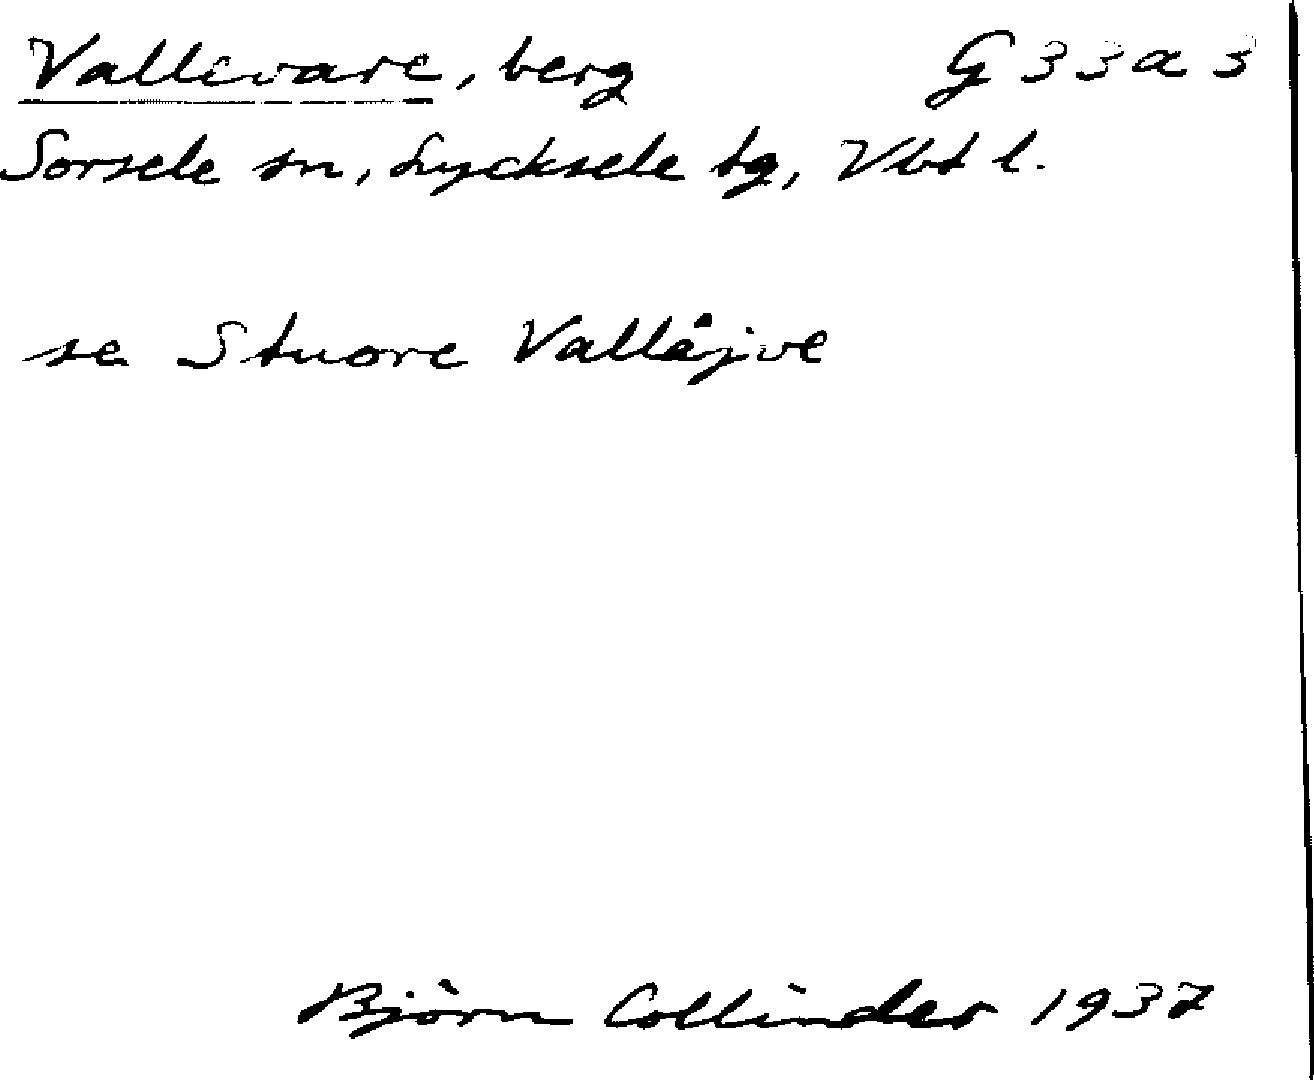 Vallevare, berg G 33 a 3
Sorsele sn, Lycksele tg, Vbt l.
se Stuore Vallåjve
Björn Collinder 1937